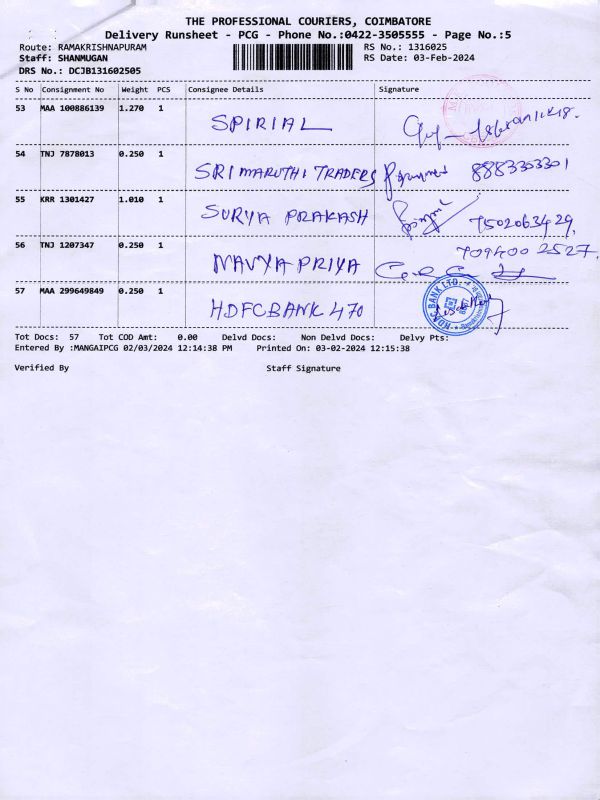 THE PROFESSIONAL COURIERS, COIMBATORE
Delivery Runsheet - PCG - Phone No.:0422-3505555 - Page No.:5
Route: RAMAKRISHNAPURAM
RS No.: 1316025
Staff: SHANMUGAN
RS Date: 03-Feb-2024
DRS No.: DCJB131602505
S No Consignment No Weight PCS Consignee Details Signature
53 MAA 100886139 1.270 1 SPIRIAL
54 TNJ 7878013 0.250 1 SRI MARUTHI TRADERS 8883303301
55 KRR 1301427 1.010 1 SURYA PRAKASH 7502063429,
709400 2527.
56 TNJ 1207347 0.250 1 NAVYA PRIYA
57 MAA 299649849 0.250 1 HDFC BANK 470
HDFC BANK LTD.
Tot Docs: 57 Tot COD Amt: 0.00 Delvd Docs: Non Delvd Docs: Delvy Pts:
Entered By :MANGAIPCG 02/03/2024 12:14:38 PM Printed On: 03-02-2024 12:15:38
Verified By Staff Signature